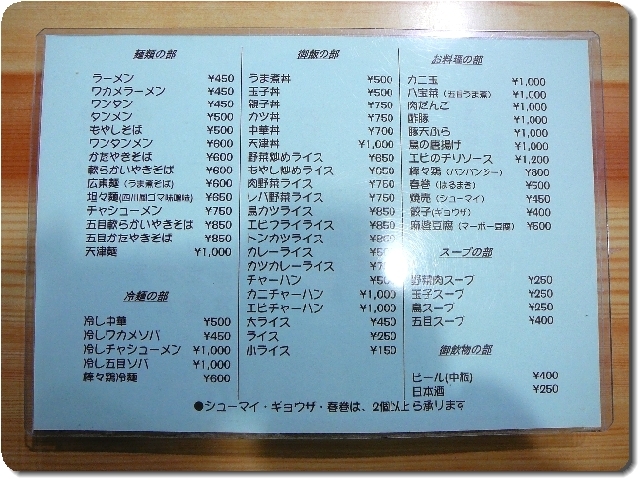 麺類の部
ラーメン ¥450
ワカメラーメン ¥450
ワンタン ¥450
タンメン ¥500
もやしそば ¥600
ワンタンメン ¥600
かたやきそば ¥600
軟らかいやきそば ¥600
広東麺(うま煮そば) ¥600
坦々麺(四川風ゴマ味噌味) ¥650
チャシューメン ¥750
五目軟らかいやきそば ¥850
五目かたやきそば ¥850
天津麺 ¥1,000
冷麺の部
冷し中華 ¥500
冷しワカメソバ ¥450
冷しチャシューメン ¥1,000
冷し五目ソバ ¥1,000
棒々鶏冷麺 ¥600
御飯の部
うま煮丼 ¥500
玉子丼 ¥500
親子丼 ¥750
カツ丼 ¥750
中華丼 ¥700
天津丼 ¥1,000
野菜炒めライス ¥650
もやし炒めライス
肉野菜ライス ¥750
レバ野菜ライス ¥750
鳥カツライス ¥850
エビフライライス ¥850
トンカツライス
カレーライス ¥500
カツカレーライス
チャーハン ¥500
カニチャーハン ¥1,000
エビチャーハン ¥1,000
大ライス ¥450
ライス ¥250
小ライス ¥150
お料理の部
カニ玉 ¥1,000
八宝菜(五目うま煮) ¥1,000
肉だんご ¥1,000
酢豚 ¥1,000
豚天ぷら ¥1,000
鳥の唐揚げ ¥1,000
エビのチリソース ¥1,200
棒々鶏(バンバンジー) ¥800
春巻(はるまき) ¥500
焼売(シューマイ) ¥450
餃子(ギョウザ) ¥400
麻婆豆腐(マーボー豆腐) ¥600
スープの部
野菜肉スープ ¥250
玉子スープ ¥250
鳥スープ ¥250
五目スープ ¥400
御飲物の部
ビール(中瓶) ¥400
日本酒 ¥250
●シューマイ・ギョウザ・春巻は、2個以上ら承ります